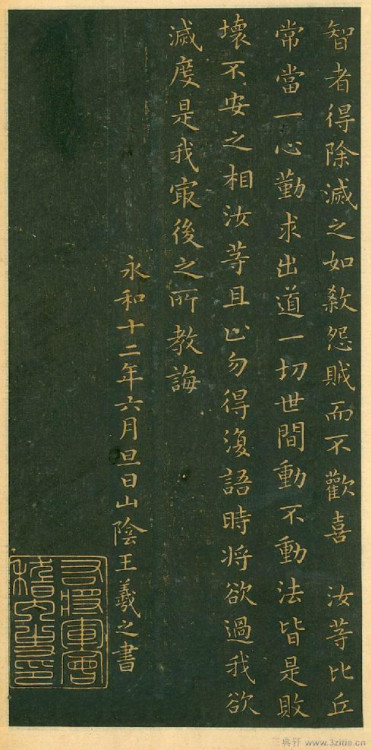 智者得除滅之如殺怨賊而不歡喜 汝等比丘
常當一心勤求出道一切世間動不動法皆是敗
壞不安之相汝等且止勿得復語時将欲過我欲
滅度是我㝡後之所教誨
永和十二年六月旦日山陰王羲之書
右將軍會
稽內史印
www.3zitie.cn